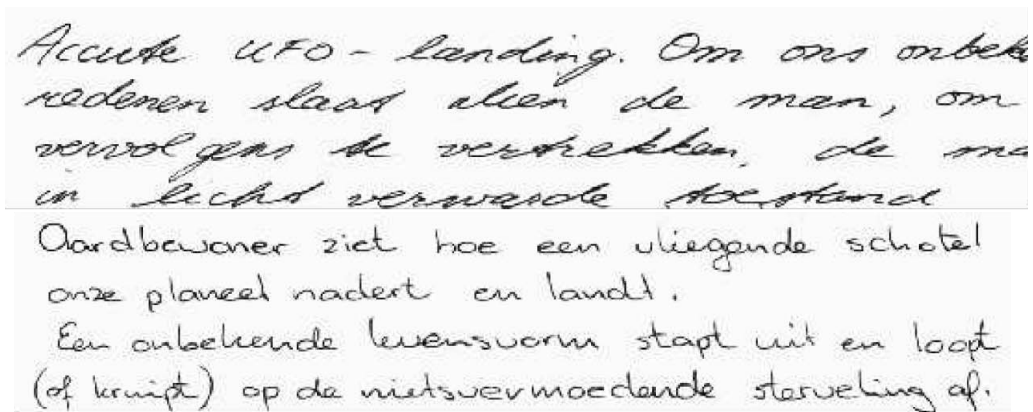 Accute UFO-landing. Om ons onbek
redenen slaat alien de man, om
vervolgens te vertrekken, de ma
in licht verwarde toestand
Aardbewoner ziet hoe een vliegende schotel
onze planeet nadert en landt.
Een onbekende levensvorm stapt uit en loopt
(of kruipt) op de nietsvermoedende sterveling af.